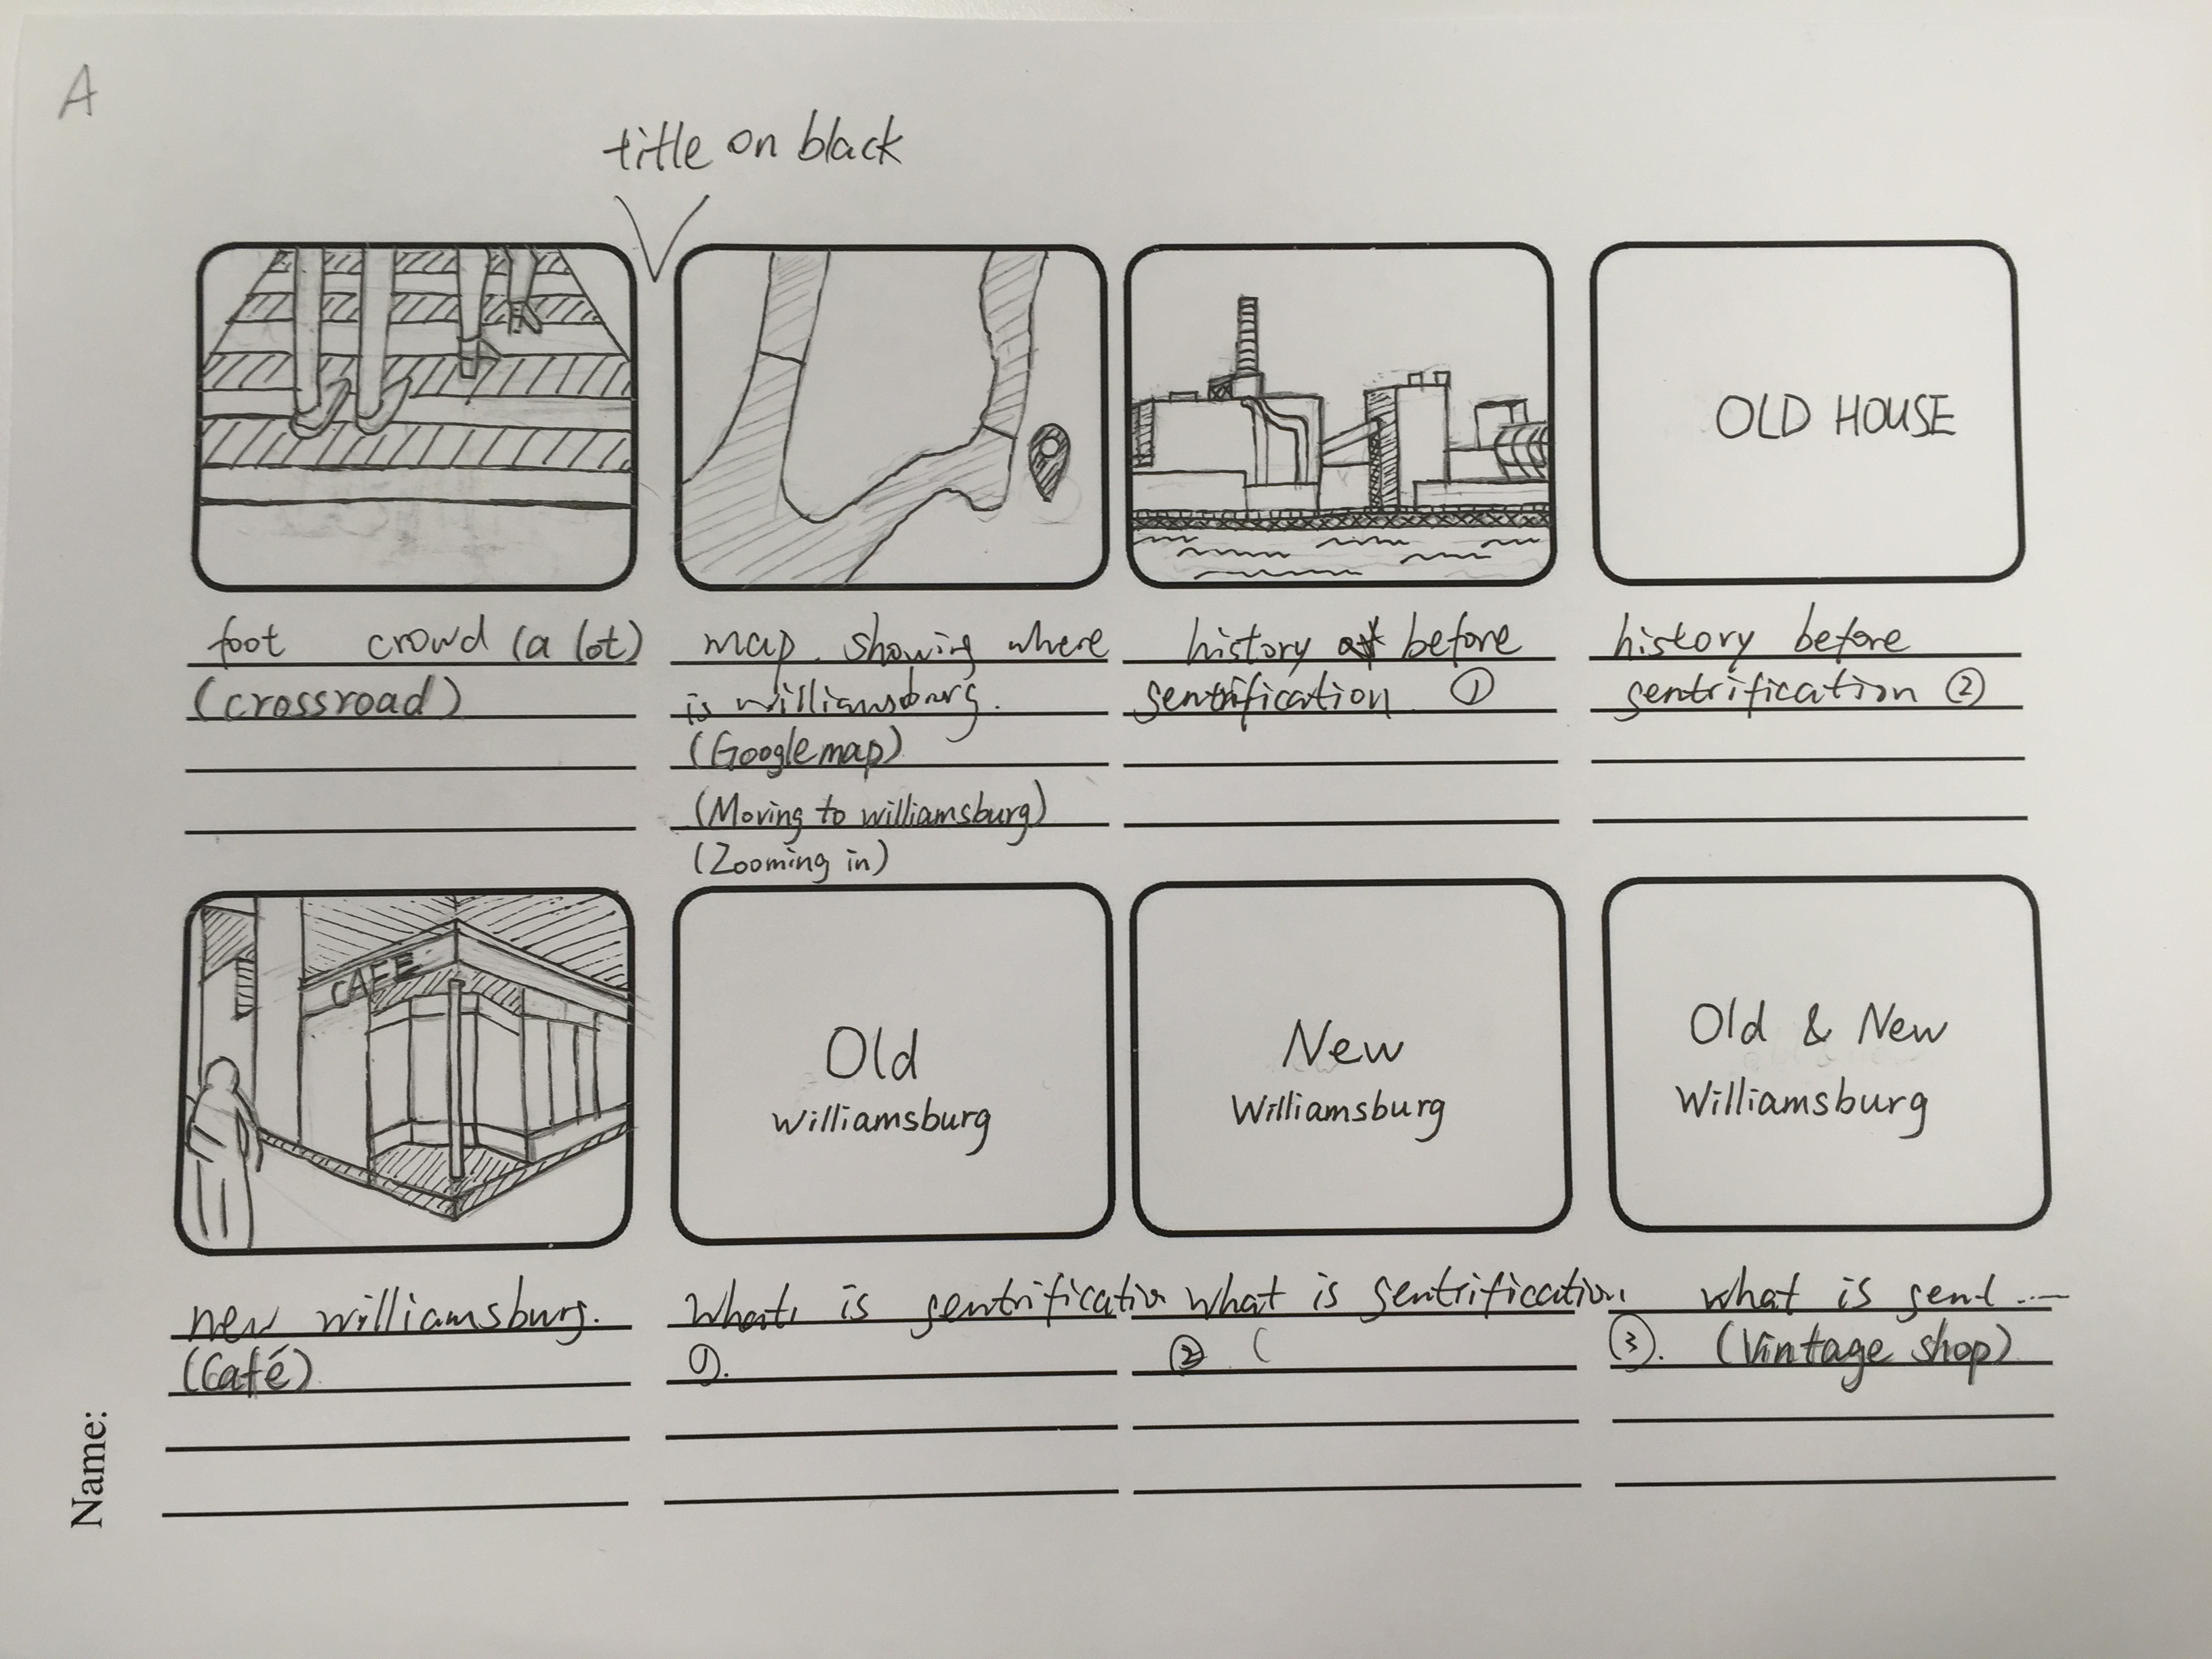 A
title on black
OLD HOUSE
foot crowd (a lot)
(crossroad)
map showing where
is williamsburg.
(Google map)
(Moving to williamsburg)
(Zooming in)
history before
gentrification ①
history before
gentrification ②
CAFE
Old
Williamsburg
New
Williamsburg
Old & New
Williamsburg
new williamsburg.
(Café)
What is gentrification
①.
what is gentrification
② (
what is gent ....
③. (Vintage shop)
Name: